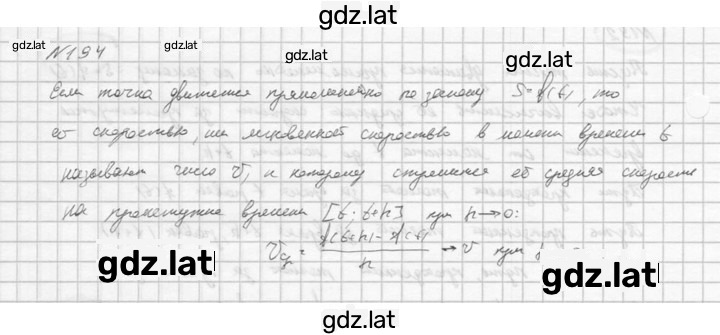 gdz.lat
gdz.lat
gdz.lat
gdz.lat
№194
Если точка движется прямолинейно по закону S=f(t), то
её скоростью, или мгновенной скоростью в момент времени t
называют число v, к которому стремится её средняя скорость
на промежутке времени [t; t+h] при h→0:
f(t+h)-f(t)
Vср = → v при
h
gdz.lat
gdz.lat
gdz.lat